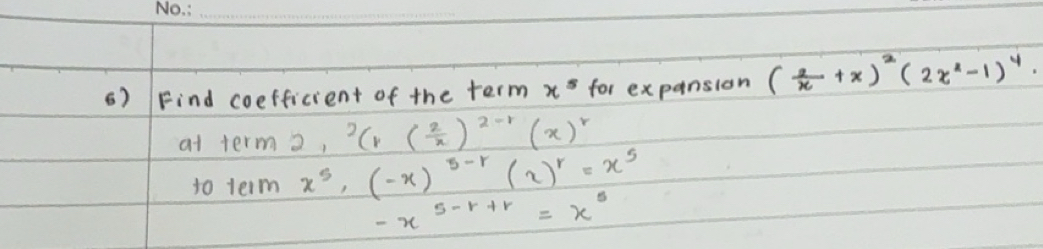 No.:
6) Find coefficient of the term x⁵ for expansion (2/x + x)² (2x² - 1)⁴.
at term 2, ²Cr (2/x)^2-r (x)^r
to term x⁵, (-x)^5-r (x)^r = x⁵
- x^5-r+r = x⁵